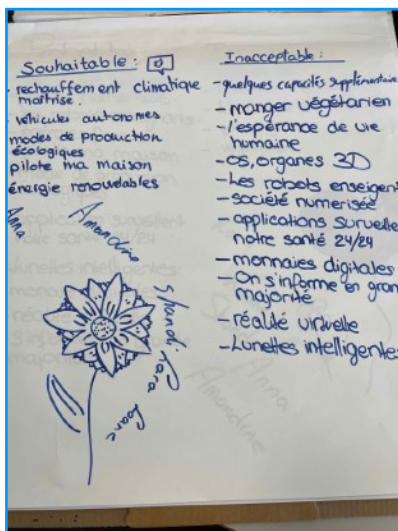 Souhaitable :
rechauffement climatique
maîtrisé.
véhicules autonomes
modes de production
écologiques
pilote ma maison
énergie renouvelables
Anna
Amandine
Shandi
Sara
Loane
Inacceptable :
- quelques capacités supplémentaire
- manger végétarien
- l'espérance de vie
humaine
- os, organes 3D
- Les robots enseigent
- société numerisée
- applications surveille
notre santé 24/24
- monnaies digitales
- On s'informe en gran
majorité
- réalité virtuelle
- Lunettes intelligentes